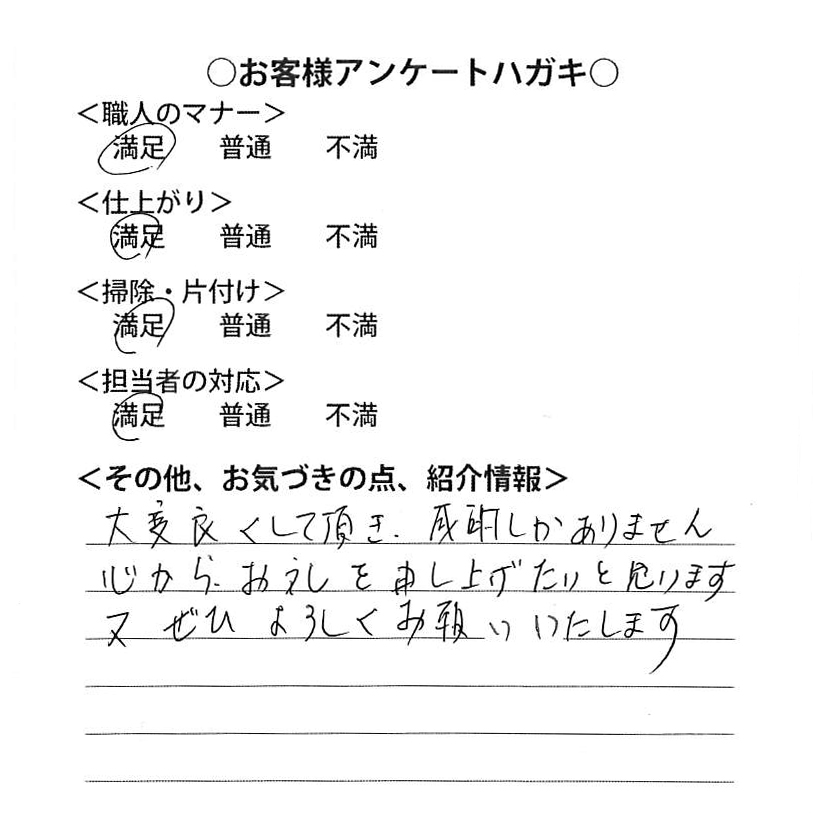 ○お客様アンケートハガキ○
＜職人のマナー＞
満足 普通 不満
＜仕上がり＞
満足 普通 不満
＜掃除・片付け＞
満足 普通 不満
＜担当者の対応＞
満足 普通 不満
＜その他、お気づきの点、紹介情報＞
大変良くして頂き、感謝しかありません
心から、お礼を申し上げたいと思います
又ぜひよろしくお願いいたします